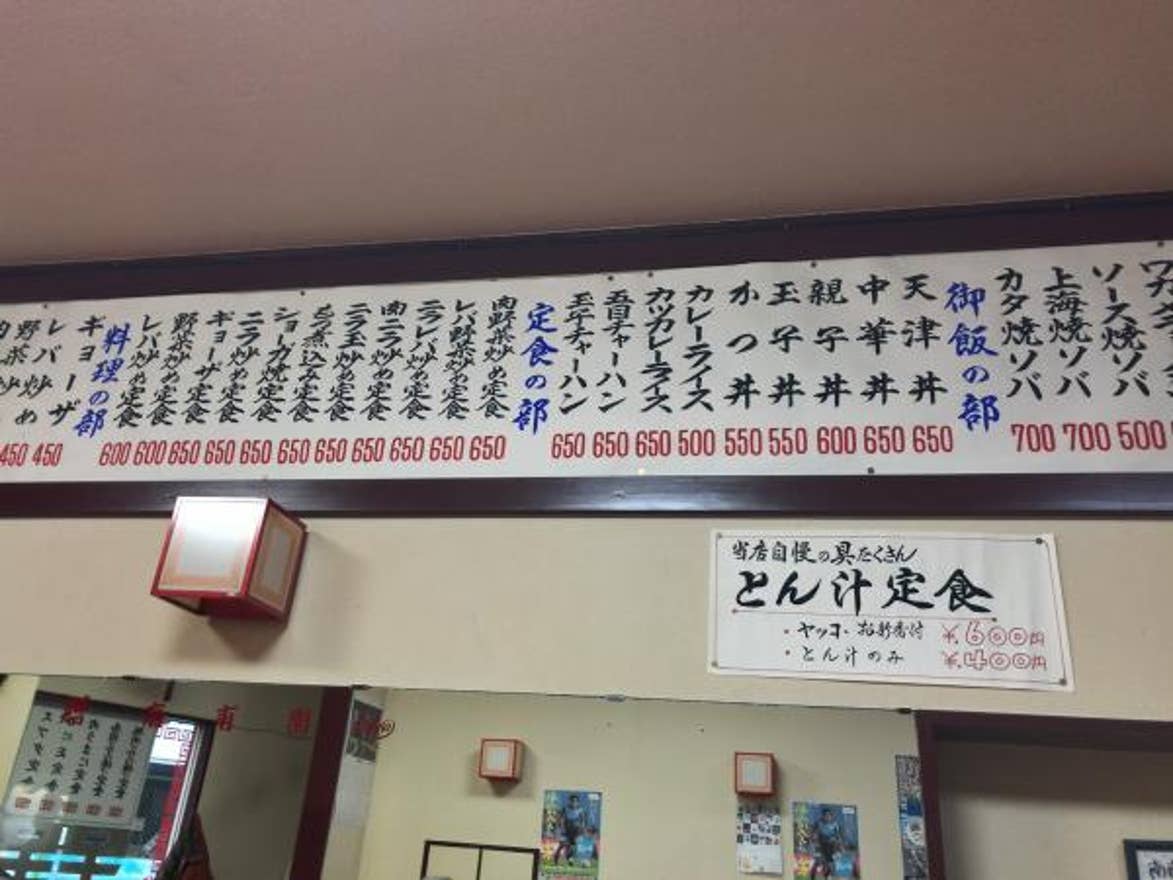 ソース焼ソバ 500
上海焼ソバ 700
カタ焼ソバ 700
御飯の部
天津丼 650
中華丼 650
親子丼 600
玉子丼 550
かつ丼 550
カレーライス 500
カツカレーライス 650
五目チャーハン 650
玉子チャーハン 650
定食の部
肉野菜炒め定食 650
レバ野菜炒め定食 650
ニラレバ炒め定食 650
肉ニラ炒め定食 650
ニラ玉炒め定食 650
もつ煮込み定食 650
ショーガ焼定食 650
ニラ炒め定食 650
ギョーザ定食 650
野菜炒め定食 600
レバ炒め定食 600
料理の部
ギョーザ 450
レバ炒め 450
野菜炒め
当店自慢の具たくさん
とん汁定食
・ヤッコ・お新香付 ¥600円
・とん汁のみ ¥400円